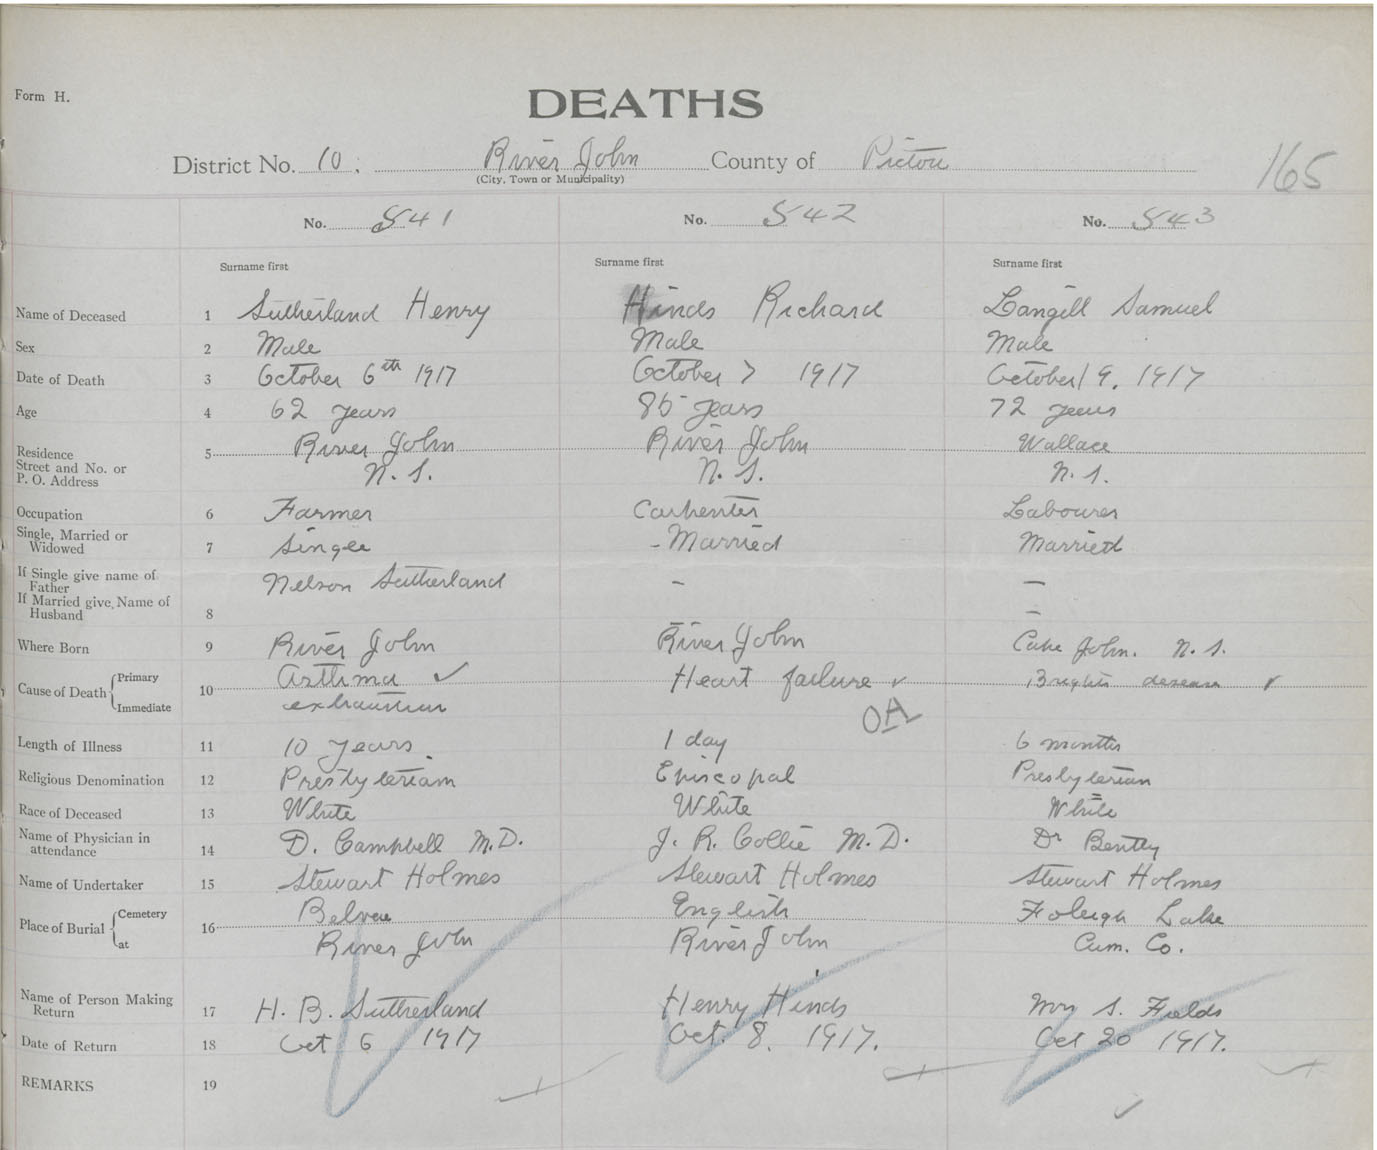 Form H.
DEATHS
District No. 10. River John County of Pictou
(City, Town or Municipality)
165
No. 541 No. 542 No. 543
Surname first Surname first Surname first
Name of Deceased 1 Sutherland Henry Hinds Richard Langill Samuel
Sex 2 Male Male Male
Date of Death 3 October 6th 1917 October 7 1917 October 19, 1917
Age 4 62 years 85 years 72 years
Residence 5 River John River John Wallace
Street and No. or
P. O. Address N. S. N. S. N. S.
Occupation 6 Farmer Carpenter Labourer
Single, Married or
Widowed 7 Single - Married Married
If Single give name of
Father Nelson Sutherland - -
If Married give Name of
Husband 8 -
Where Born 9 River John River John Cape John. N. S.
Cause of Death Primary 10 Asthma ✓ Heart failure ✓ Brights disease ✓
Immediate exhaustion OA
Length of Illness 11 10 years. 1 day 6 months
Religious Denomination 12 Presbyterian Episcopal Presbyterian
Race of Deceased 13 White White White
Name of Physician in
attendance 14 D. Campbell M.D. J. R. Collie M. D. Dr Bently
Name of Undertaker 15 Stewart Holmes Stewart Holmes Stewart Holmes
Place of Burial Cemetery 16 English Lake
at River John River John Cum. Co.
Name of Person Making
Return 17 H. B. Sutherland Henry Hinds Mrs S. Fields
Date of Return 18 Oct 6 1917 Oct. 8. 1917. Oct 20 1917.
REMARKS 19